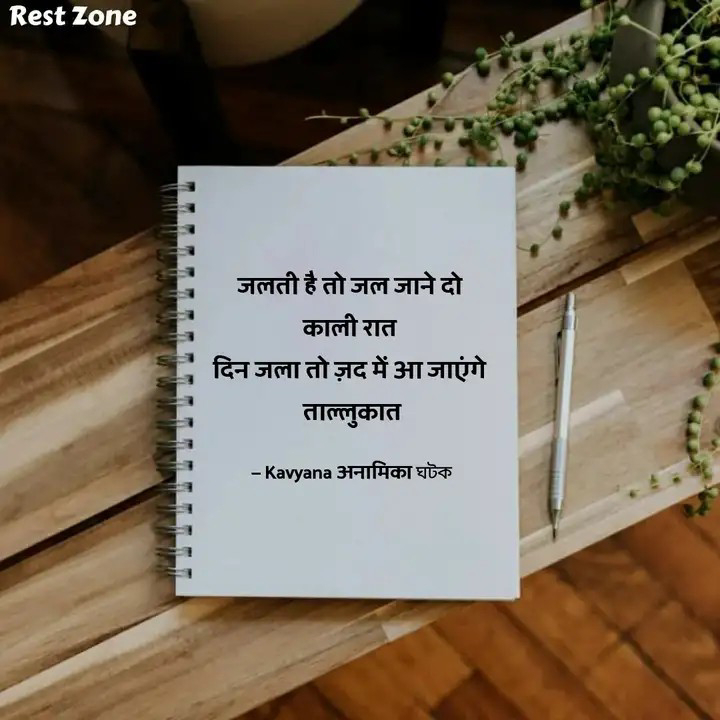 Rest Zone
जलती है तो जल जाने दो
काली रात
दिन जला तो ज़द में आ जाएंगे
ताल्लुकात
– Kavyana अनामिका ঘটক